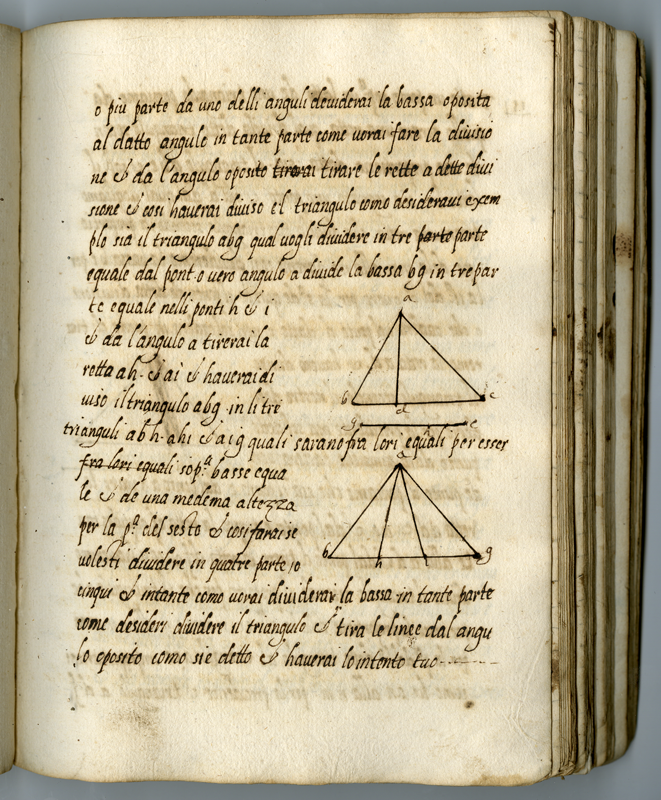 o piu parte da uno delli anguli deviderai la bassa oposita
al datto angulo in tante parte come vorai fare la divisio
ne & da l'angulo oposito tirarai tirare le rette a dette divi
sione & cosi haverai diviso el triangulo como desideravi exem
plo sia il triangulo abg qual vogli dividere in tre parte parte
equale dal ponto vero angulo a divide la bassa bg in tre par
te equale nelli ponti h & i
& da l'angulo a tirerai la
retta ah & ai & haverai di
viso il triangulo abg in li tre
trianguli abh ahi & aig quali sarano fra lori equali per esser
fra lori equali sopª basse equa
le & de una medema altezza
per la pª del sesto & cosi farai se
volesti dividere in quatre parte o
cinque & intante como vorai dividerai la bassa in tante parte
come desideri dividere il triangulo & tira le linee dal angu
lo oposito como sie detto & haverai lo intento tuo
a
b
d
c
g
e
a
b
h
i
g